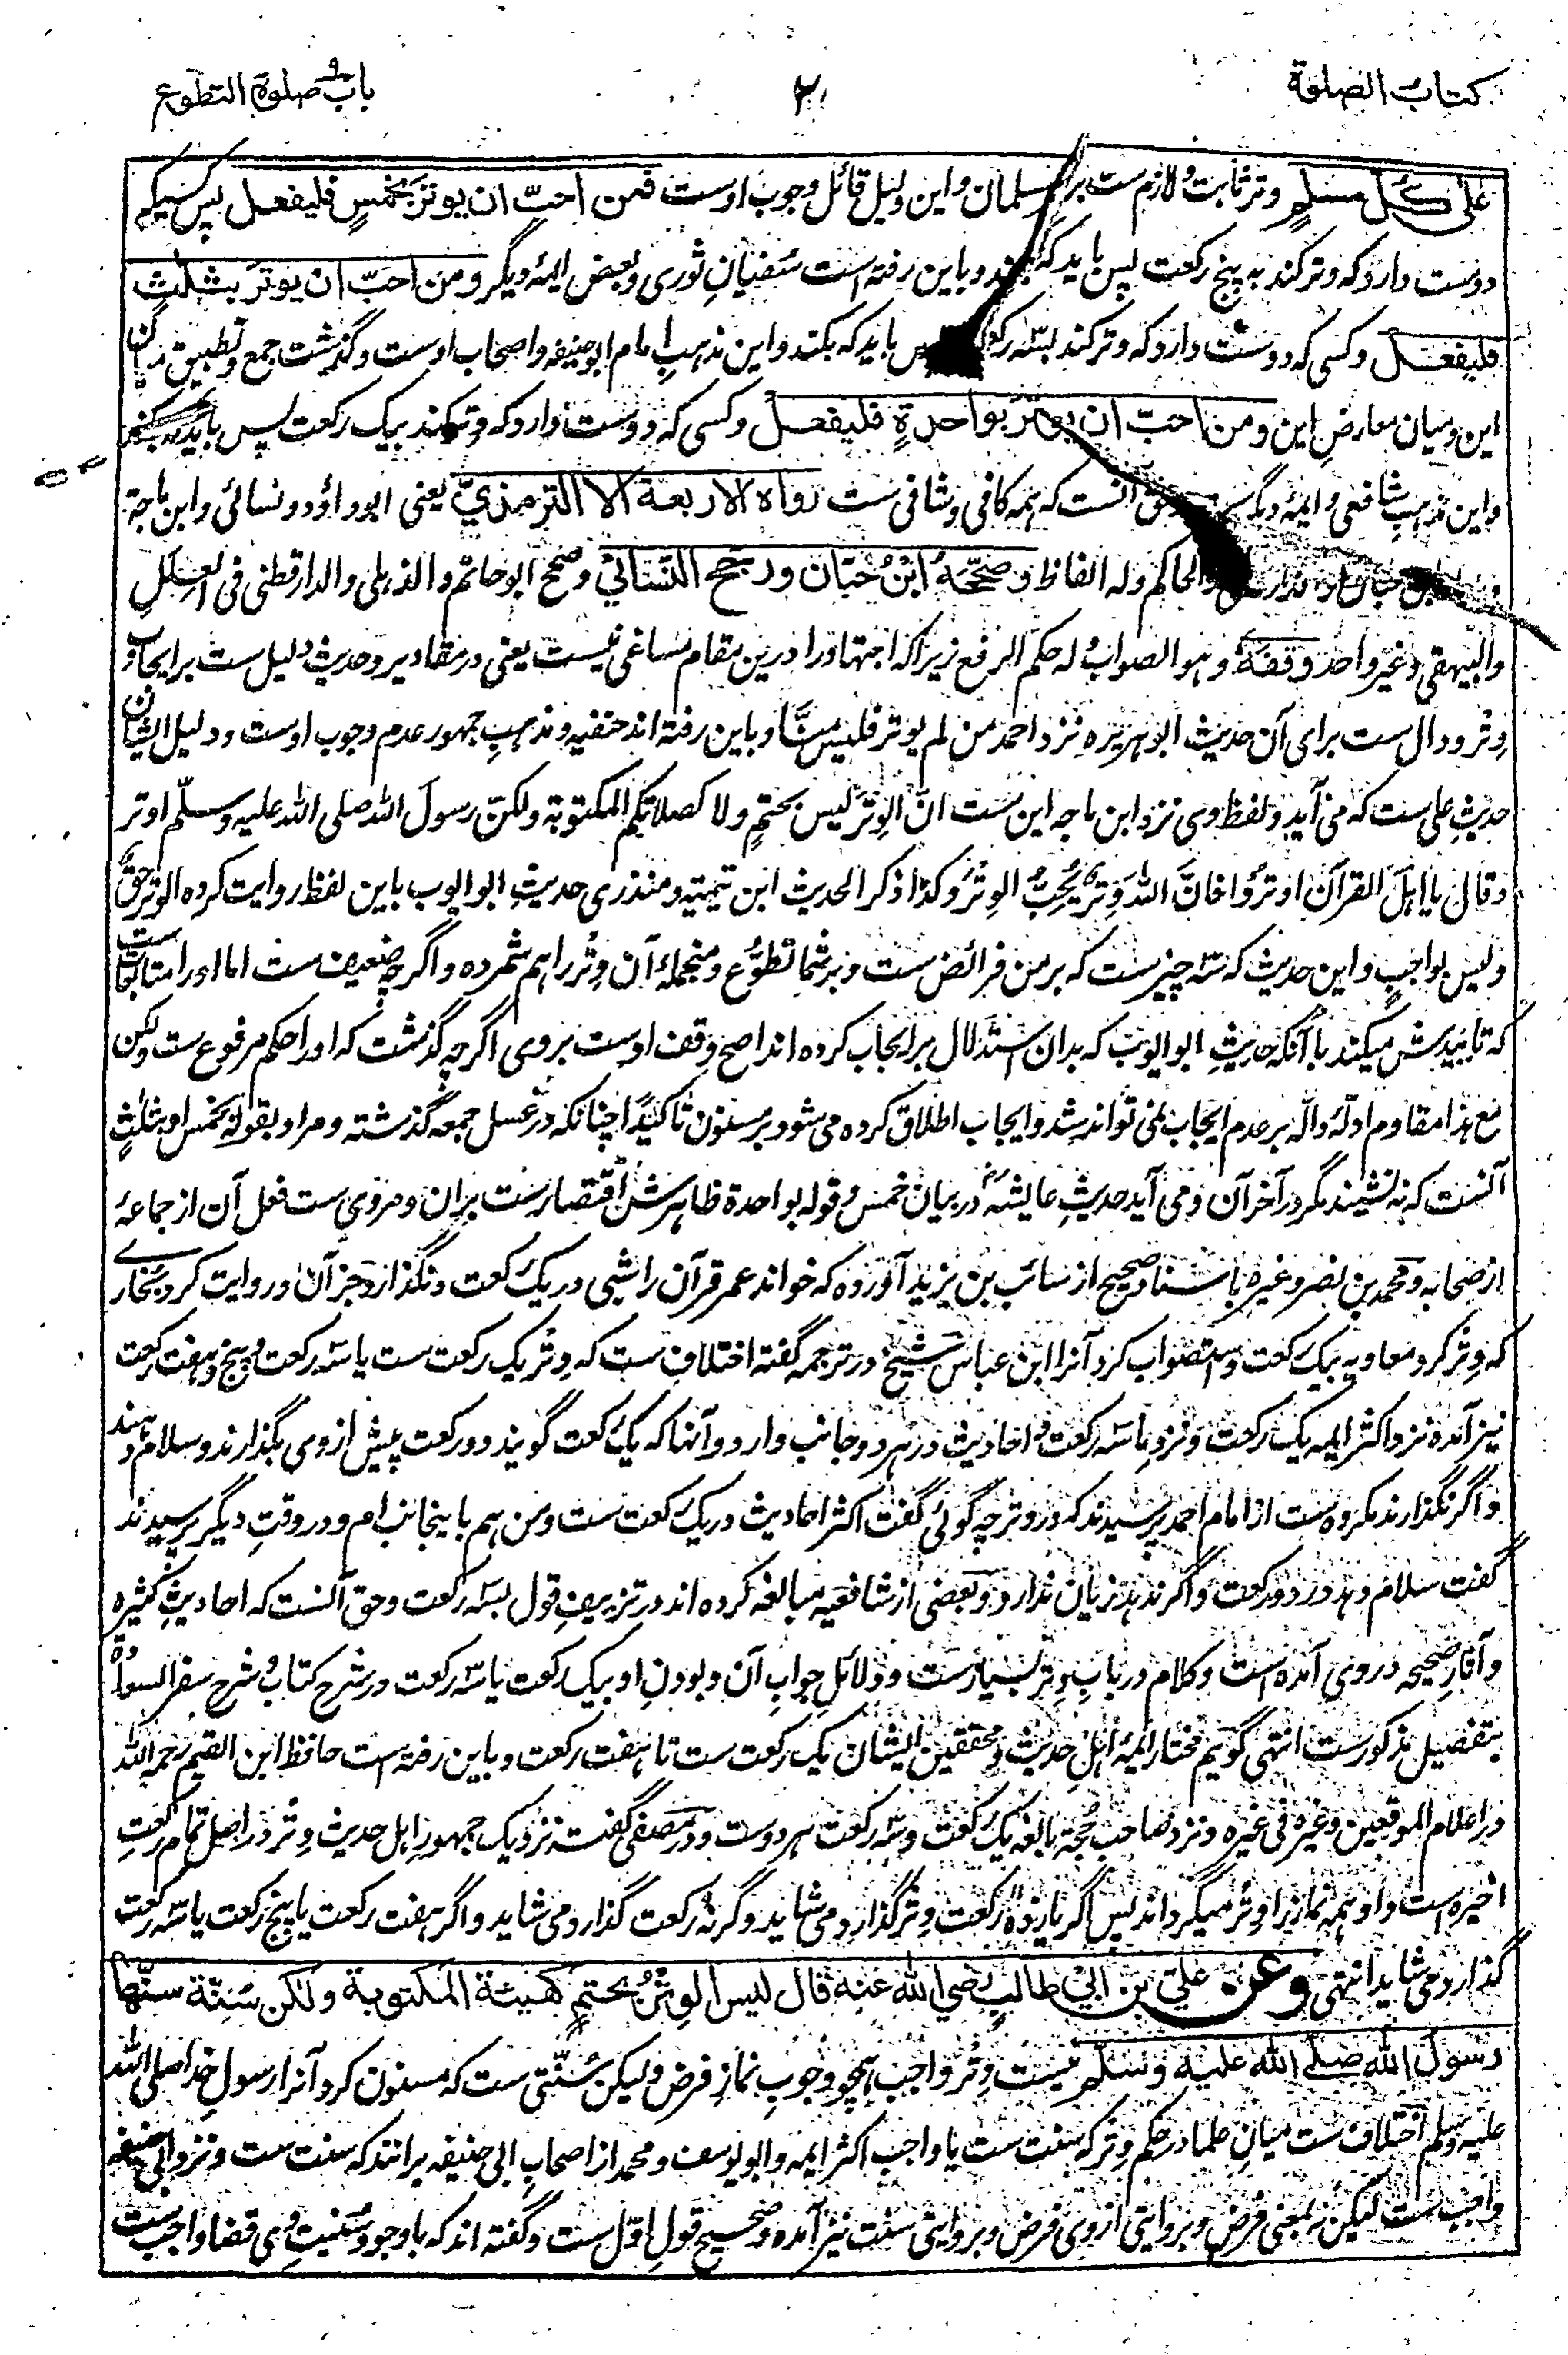 كتاب الصلوة
باب صلوة التطوع
على كل مسلم وتر ثابت و لازم ست بر مسلمان و این دلیل قائل وجوب اوست فمن احبّ ان يوتر بخمسٍ فليفعل پس کسیکه
دوست دارد که وتر کند به پنج رکعت پس باید که بکند و باین رفته است سفیانِ ثوری و بعض ایمهٔ دیگر و من احبّ ان یوتر بثلث
فليفعل و کسی که دوست دارد که وتر کند بسه رکعت پس باید که بکند و این مذهبِ امام ابو حنیفه و اصحاب اوست و گذشت جمع و تطبیق میان
این و میان معارضِ این و من احبّ ان یوتر بواحدةٍ فليفعل و کسی که دوست دارد که وتر کند بیک رکعت پس باید که بکند
و این مذهبِ شافعی و ایمهٔ دیگر ست و حق آنست که همه کافی و شافی ست رواه الاربعة الا الترمذيّ یعنی ابو داؤد و نسائی و ابن ماجة
ابن حبان و الدارقطنی و الحاکم و له الفاظ و صحّحهُ ابنُ حبّان و رجح النسائيُ و صحح ابو حاتم و الذهلی و الدارقطنی فی العِلَلِ
و البیهقی و غیر واحد وقفهُ و هو الصوابُ له حکم الرفع زیرا که اجتهاد را درین مقام مساغی نیست یعنی در مقادیر و حدیث دلیل ست بر ایجاب
وتر و دال ست برای آن حدیث ابو هریره نزد احمد من لم یوتر فلیس منّا و باین رفته اند حنفیه و مذهبِ جمهور عدم وجوب اوست و دلیل ایشان
حدیثِ علی ست که می آید و لفظ وی نزد ابن ماجه این ست انّ الوِترَ لیس بحتمٍ و لا کصلاتکم المکتوبة و لکنّ رسولَ الله صلی الله علیه و سلّم اوتر
و قال یا اهلَ القرآن اوترُوا فانَّ اللهَ وِترٌ یُحِبُّ الوِترَ و کذا ذکر الحدیث ابن تیمیه و منذری حدیثِ ابو ایوب باین لفظ روایت کرده الوتر حقٌ
و لیس بواجبٍ و این حدیث که سه چیز ست که بر من فرائض ست و بر شما تطوُّع و منجملهٔ آن وِتر را هم شمرده و اگرچه ضعیف ست اما او را متابعات ست
که تایید ش میکند با آنکه حدیثِ ابو ایوب که بدان استدلال بر ایجاب کرده اند اصح وقف اوست بر وی اگرچه گذشت که او را حکم مرفوع ست و لکن
مع هذا مقاوم ادلّهٔ دالّه بر عدم ایجاب نمی تواند شد و ایجاب اطلاق کرده می شود بر مسنون تاکیداً چنانکه در غسل جمعه گذشته و مراد بقوله بخمس او بثلثٍ
آنست که نه نشیند مگر در آخر آن و می آید حدیثِ عایشه در بیان خمس و قوله بواحدة ظاهرش اقتصار ست بران و مروی ست فعل آن از جماعهٔ
از صحابه و محمد بن نصر و غیره باسناد صحیح از سائب بن یزید آورده که خواند عمر قرآن را شبی در یک رکعت و نگذارد جز آن و روایت کرد بخاری
که وِتر کرد معاویه بیک رکعت و استصواب کرد آنرا ابن عباس شیخ در ترجمه گفته اختلاف ست که وِتر یک رکعت ست یا سه رکعت و پنج و هفت رکعت
نیز آمده نزد اکثر ایمه یک رکعت و نزد ما سه رکعت و احادیث در هر دو جانب وارد و آنها که یک رکعت گویند دو رکعت پیش از وی بگذارند و سلام دهند
و اگر نگذارند مکروه ست از امام احمد پرسیدند که در وتر چه گوئی گفت اکثر احادیث در یک رکعت ست و من هم باینجانب ام و در وقتِ دیگر پرسیدند
گفت سلام دهد در دو رکعت و اگر ندهد زیان ندارد و بعضی از شافعیه مبالغه کرده اند در تزییفِ قول بسه رکعت و حق آنست که احادیثِ کثیره
و آثارِ صحیحه در وی آمده است و کلام در بابِ وِتر بسیار ست و دلائل جوابِ آن و بودنِ او بیک رکعت یا سه رکعت در شرح کتاب شرح سفر السعادة
بتفصیل مذکور ست انتهی گویم مختار ایمهٔ اهلِ حدیث و محققین ایشان یک رکعت ست تا هفت رکعت و باین رفته است حافظ ابن القیم رحمه الله
در اعلام الموقعین و غیره فی غیره و نزد صاحب حُجة بالغه یک رکعت و سه رکعت هر دوست و در مصفی گفته نزدیک جمهورِ اهل حدیث وِتر در اصل تمام رکعتِ
اخیره است و او همه نماز را وِتر میگرداند پس اگر یازده رکعت وِتر گذارد می شاید و گر نُه رکعت گذارد می شاید و اگر هفت رکعت یا پنج رکعت یا سه رکعت
گذارد می شاید انتهی وعن علي بن ابي طالبٍ رضي الله عنه قال ليس الوِترُ بحتمٍ كهيئة المكتوبة ولكن سُنّة سنّها
رسول الله صلے الله عليه وسلم نیست وِتر واجب همچو وجوبِ نمازِ فرض و لیکن سُنّتی ست که مسنون کرد آنرا رسولِ خدا صلی الله
علیه و سلم اختلاف ست میانِ علما در حکم وِتر که سنت ست یا واجب اکثر ایمه و ابو یوسف و محمد از اصحابِ ابی حنیفه برانند که سنت ست و نزد ابی حنیفه
واجب ست لیکن نه بمعنی فرض و بروایتی از وی فرض و بروایتی سنت نیز آمده و صحیح قولِ اوّل ست و گفته اند که با وجود سُنیتِ وی قضا واجب ست